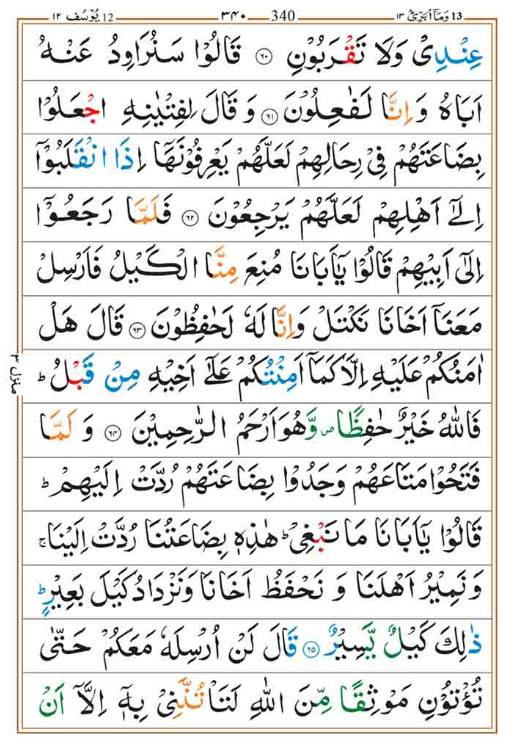 13 وَمَآ اُبَرِّئُ ١٣ — 340 — ٣٤٠ — 12 يُوْسُف ١٢
عِنْدِىْ وَلَا تَقْرَبُوْنِ ۝٦٠ قَالُوْا سَنُرَاوِدُ عَنْهُ
اَبَاهُ وَاِنَّا لَفٰعِلُوْنَ ۝٦١ وَقَالَ لِفِتْيٰنِهِ اجْعَلُوْا
بِضَاعَتَهُمْ فِىْ رِحَالِهِمْ لَعَلَّهُمْ يَعْرِفُوْنَهَآ اِذَا انْقَلَبُوْٓا
اِلٰٓى اَهْلِهِمْ لَعَلَّهُمْ يَرْجِعُوْنَ ۝٦٢ فَلَمَّا رَجَعُوْٓا
اِلٰٓى اَبِيْهِمْ قَالُوْا يٰٓاَبَانَا مُنِعَ مِنَّا الْكَيْلُ فَاَرْسِلْ
مَعَنَآ اَخَانَا نَكْتَلْ وَاِنَّا لَهٗ لَحٰفِظُوْنَ ۝٦٣ قَالَ هَلْ
اٰمَنُكُمْ عَلَيْهِ اِلَّا كَمَآ اَمِنْتُكُمْ عَلٰٓى اَخِيْهِ مِنْ قَبْلُ ؕ
فَاللّٰهُ خَيْرٌ حٰفِظًا ۪ وَّهُوَ اَرْحَمُ الرّٰحِمِيْنَ ۝٦٤ وَلَمَّا
فَتَحُوْا مَتَاعَهُمْ وَجَدُوْا بِضَاعَتَهُمْ رُدَّتْ اِلَيْهِمْ ؕ
قَالُوْا يٰٓاَبَانَا مَا نَبْغِىْ ؕ هٰذِهٖ بِضَاعَتُنَا رُدَّتْ اِلَيْنَا ۚ
وَنَمِيْرُ اَهْلَنَا وَنَحْفَظُ اَخَانَا وَنَزْدَادُ كَيْلَ بَعِيْرٍ ؕ
ذٰلِكَ كَيْلٌ يَّسِيْرٌ ۝٦٥ قَالَ لَنْ اُرْسِلَهٗ مَعَكُمْ حَتّٰى
تُؤْتُوْنِ مَوْثِقًا مِّنَ اللّٰهِ لَتَاْتُنَّنِىْ بِهٖٓ اِلَّآ اَنْ
منزل ٣